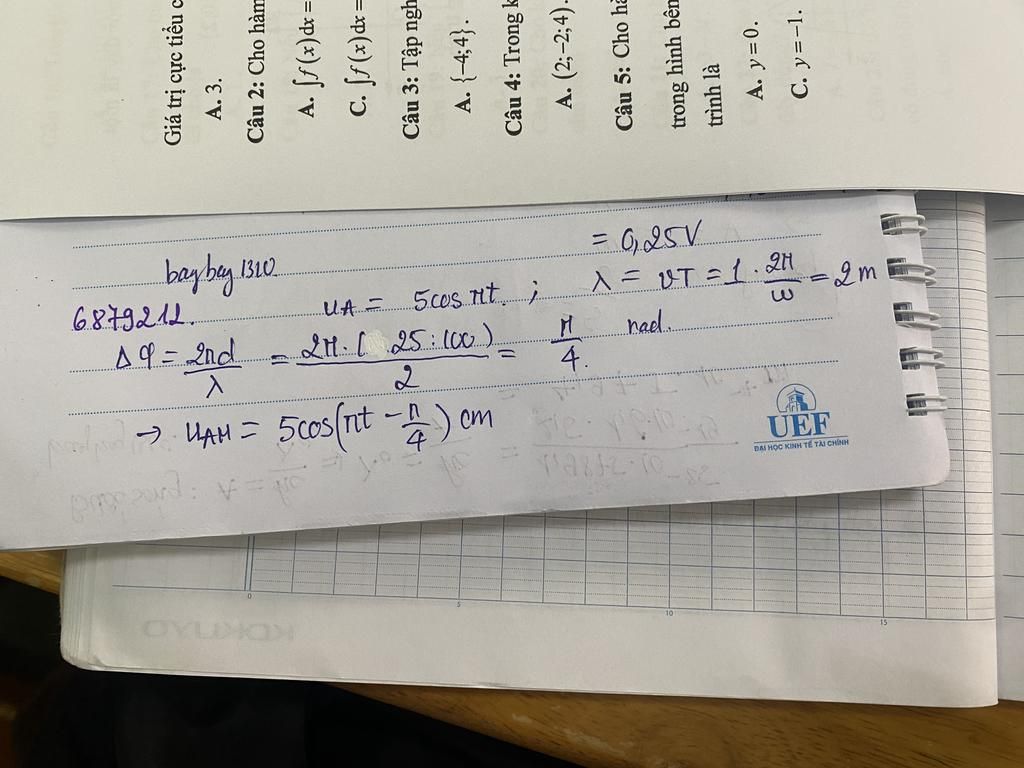 Giá trị cực tiểu c
A. 3.
Câu 2: Cho hàm
A. ∫f(x)dx =
C. ∫f(x)dx =
Câu 3: Tập ngh
A. {-4;4}.
Câu 4: Trong k
A. (2;-2;4).
Câu 5: Cho hà
trong hình bên
trình là
A. y = 0.
C. y = -1.
= 0,25V
baybay1310
6879212.
u_A = 5cos πt. ; λ = vT = 1 . 2π/ω = 2m
Δφ = 2πd/λ = 2π.( 25:100)/2 = π/4 rad.
→ u_AM = 5cos(πt - π/4) cm
UEF
ĐẠI HỌC KINH TẾ TÀI CHÍNH
0 5 10 15
KOKUYO